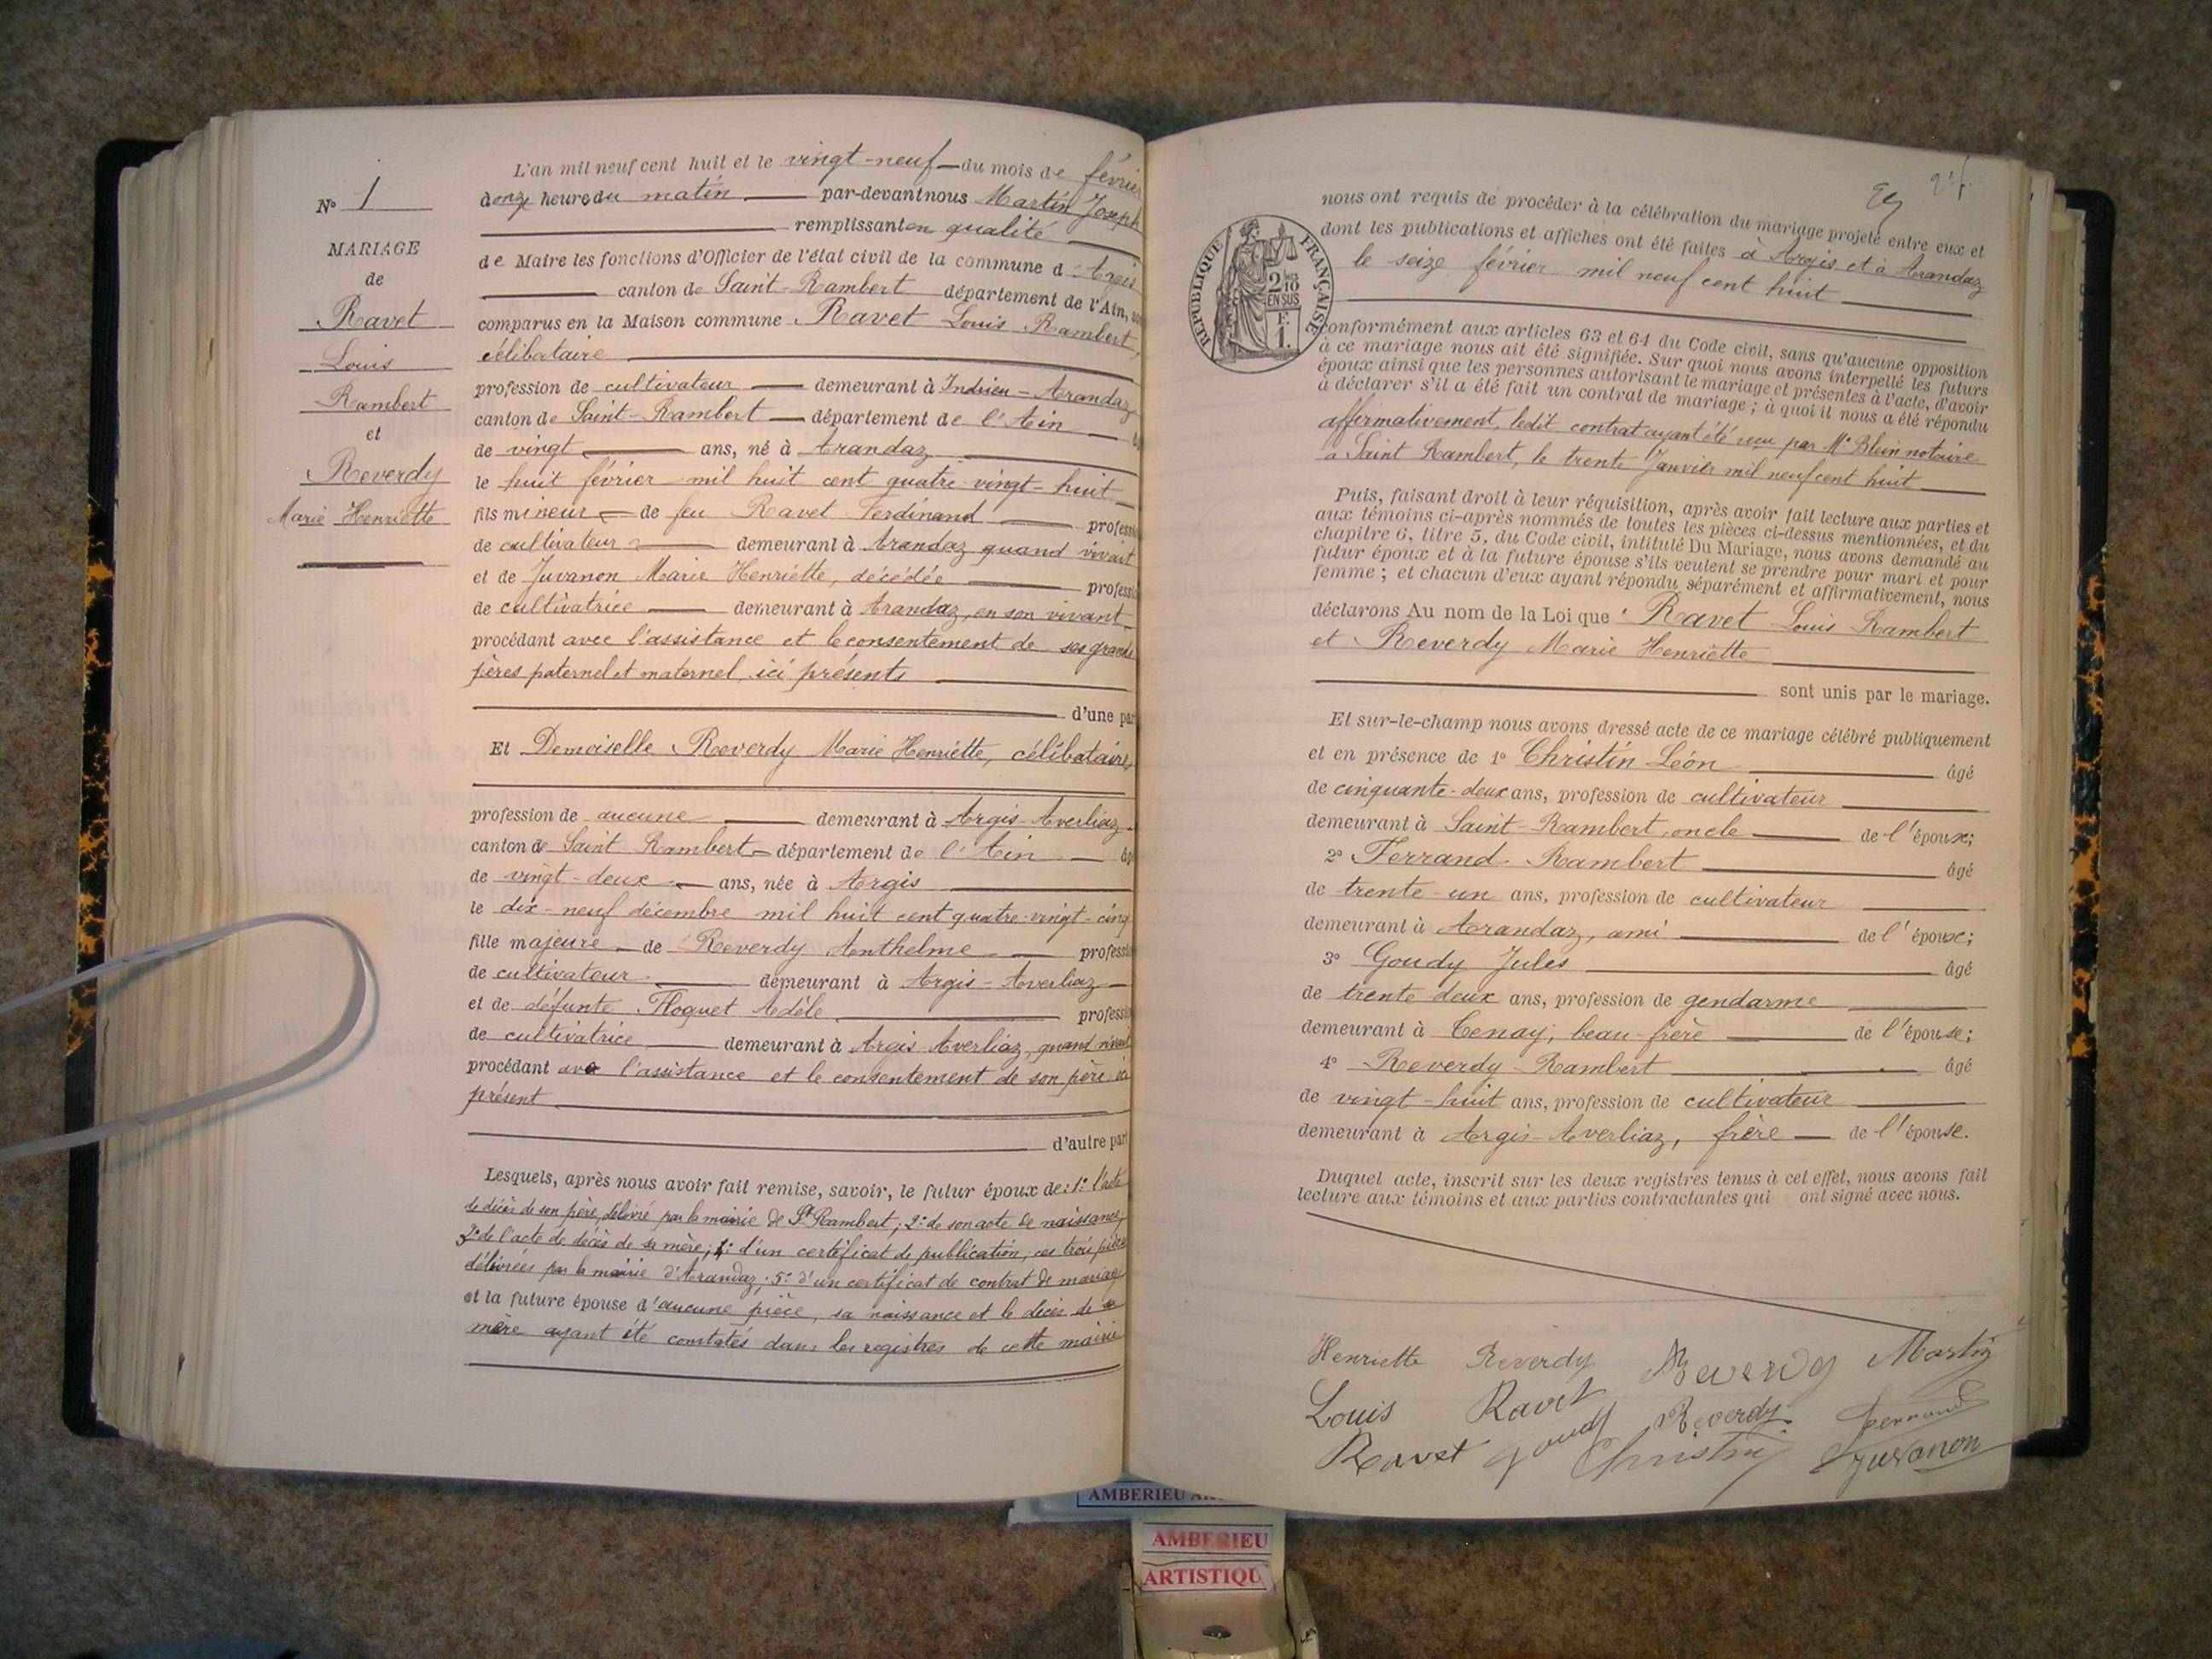 N° 1
MARIAGE
de
Ravet
Louis
Rambert
et
Reverdy
Marie Henriette
L'an mil neuf cent huit et le vingt-neuf du mois de février
à onze heure du matin par-devant nous Martin Joseph
remplissant en qualité
de Maire les fonctions d'Officier de l'état civil de la commune d'Argis
canton de Saint-Rambert département de l'Ain,
comparus en la Maison commune Ravet Louis Rambert,
célibataire
profession de cultivateur demeurant à Indrieu-Arandaz
canton de Saint-Rambert département de l'Ain
de vingt ans, né à Arandaz
le huit février mil huit cent quatre-vingt-huit
fils mineur de feu Ravet Ferdinand professi
de cultivateur demeurant à Arandaz quand vivait
et de Juvanon Marie Henriette, décédée professi
de cultivatrice demeurant à Arandaz, en son vivant
procédant avec l'assistance et le consentement de ses grands
pères paternel et maternel, ici présents
d'une par
Et Demoiselle Reverdy Marie Henriette, célibataire,
profession de aucune demeurant à Argis-Averliaz
canton de Saint Rambert département de l'Ain âgé
de vingt-deux ans, née à Argis
le dix-neuf décembre mil huit cent quatre-vingt-cinq
fille majeure de Reverdy Anthelme professi
de cultivateur demeurant à Argis-Averliaz
et de défunte Floquet Adèle professi
de cultivatrice demeurant à Argis-Averliaz, quand vivait
procédant avec l'assistance et le consentement de son père ici
présent
d'autre part
Lesquels, après nous avoir fait remise, savoir, le futur époux de: 1° l'acte
de décès de son père, délivré par la mairie de St Rambert; 2° de son acte de naissance;
3° de l'acte de décès de sa mère; 4° d'un certificat de publication, ces trois pièces
délivrées par la mairie d'Arandaz; 5° d'un certificat de contrat de mariage
et la future épouse d'aucune pièce, sa naissance et le décès de sa
mère ayant été constatés dans les registres de cette mairie
RÉPUBLIQUE FRANÇAISE
2/10
EN SUS
F.
1.
nous ont requis de procéder à la célébration du mariage projeté entre eux et
dont les publications et affiches ont été faites à Argis et à Arandaz
le seize février mil neuf cent huit
conformément aux articles 63 et 64 du Code civil, sans qu'aucune opposition
à ce mariage nous ait été signifiée. Sur quoi nous avons interpellé les futurs
époux ainsi que les personnes autorisant le mariage et présentes à l'acte, d'avoir
à déclarer s'il a été fait un contrat de mariage; à quoi il nous a été répondu
affirmativement, ledit contrat ayant été reçu par Me Blein notaire
à Saint Rambert, le trente Janvier mil neuf cent huit
Puis, faisant droit à leur réquisition, après avoir fait lecture aux parties et
aux témoins ci-après nommés de toutes les pièces ci-dessus mentionnées, et du
chapitre 6, titre 5, du Code civil, intitulé Du Mariage, nous avons demandé au
futur époux et à la future épouse s'ils veulent se prendre pour mari et pour
femme; et chacun d'eux ayant répondu séparément et affirmativement, nous
déclarons Au nom de la Loi que Ravet Louis Rambert
et Reverdy Marie Henriette
sont unis par le mariage.
Et sur-le-champ nous avons dressé acte de ce mariage célébré publiquement
et en présence de 1° Christin Léon âgé
de cinquante-deux ans, profession de cultivateur
demeurant à Saint-Rambert, oncle de l'époux;
2° Ferrand Rambert âgé
de trente-un ans, profession de cultivateur
demeurant à Arandaz, ami de l'époux;
3° Goudy Jules âgé
de trente-deux ans, profession de gendarme
demeurant à Tenay, beau-frère de l'épouse;
4° Reverdy Rambert âgé
de vingt-huit ans, profession de cultivateur
demeurant à Argis-Averliaz, frère de l'épouse.
Duquel acte, inscrit sur les deux registres tenus à cet effet, nous avons fait
lecture aux témoins et aux parties contractantes qui ont signé avec nous.
Henriette Reverdy Reverdy Martin
Louis Ravet Reverdy Ferrand
Ravet Goudy Christin Juvanon
AMBERIEU
AMBERIEU
ARTISTIQU